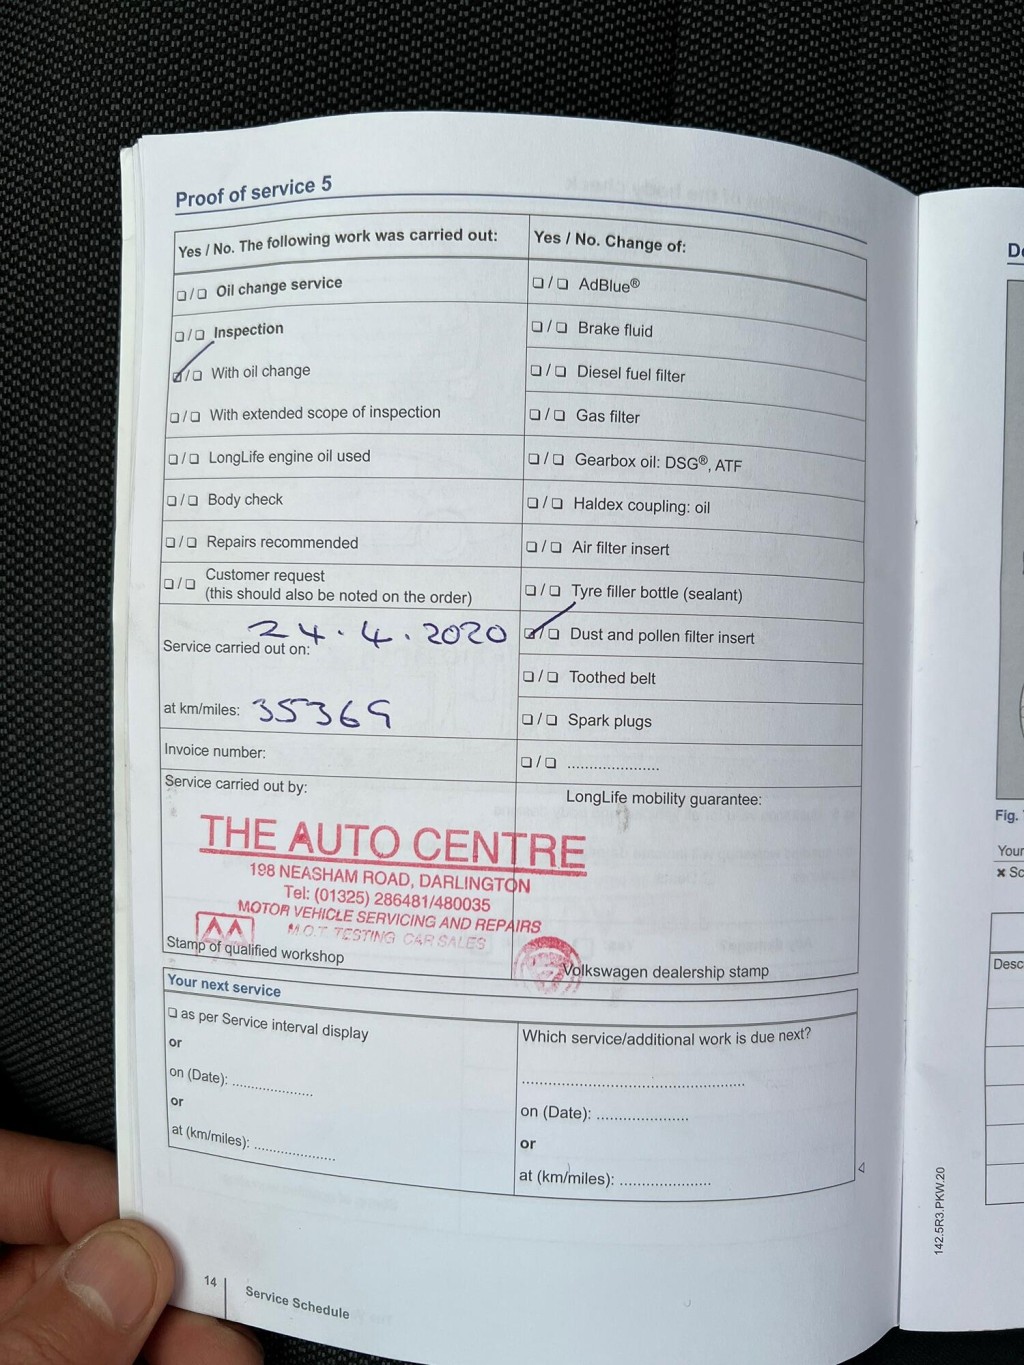 Proof of service 5
Yes / No. The following work was carried out:
Yes / No. Change of:
❏ / ❏ Oil change service
❏ / ❏ AdBlue®
❏ / ❏ Inspection
❏ / ❏ Brake fluid
☑ / ❏ With oil change
❏ / ❏ Diesel fuel filter
❏ / ❏ With extended scope of inspection
❏ / ❏ Gas filter
❏ / ❏ LongLife engine oil used
❏ / ❏ Gearbox oil: DSG®, ATF
❏ / ❏ Body check
❏ / ❏ Haldex coupling: oil
❏ / ❏ Repairs recommended
❏ / ❏ Air filter insert
❏ / ❏ Customer request
(this should also be noted on the order)
❏ / ❏ Tyre filler bottle (sealant)
24.4.2020
Service carried out on:
☑ / ❏ Dust and pollen filter insert
❏ / ❏ Toothed belt
at km/miles: 35369
❏ / ❏ Spark plugs
Invoice number:
❏ / ❏ ......................
Service carried out by:
LongLife mobility guarantee:
THE AUTO CENTRE
198 NEASHAM ROAD, DARLINGTON
Tel: (01325) 286481/480035
MOTOR VEHICLE SERVICING AND REPAIRS
M.O.T. TESTING CAR SALES
AA
Stamp of qualified workshop
Volkswagen dealership stamp
Your next service
❏ as per Service interval display
Which service/additional work is due next?
or
on (Date): ....................
.....................................................
or
on (Date): ......................
or
at (km/miles): ....................
at (km/miles): ......................
14
Service Schedule
142.5R3.PKW.20
Fig.
Your
Desc